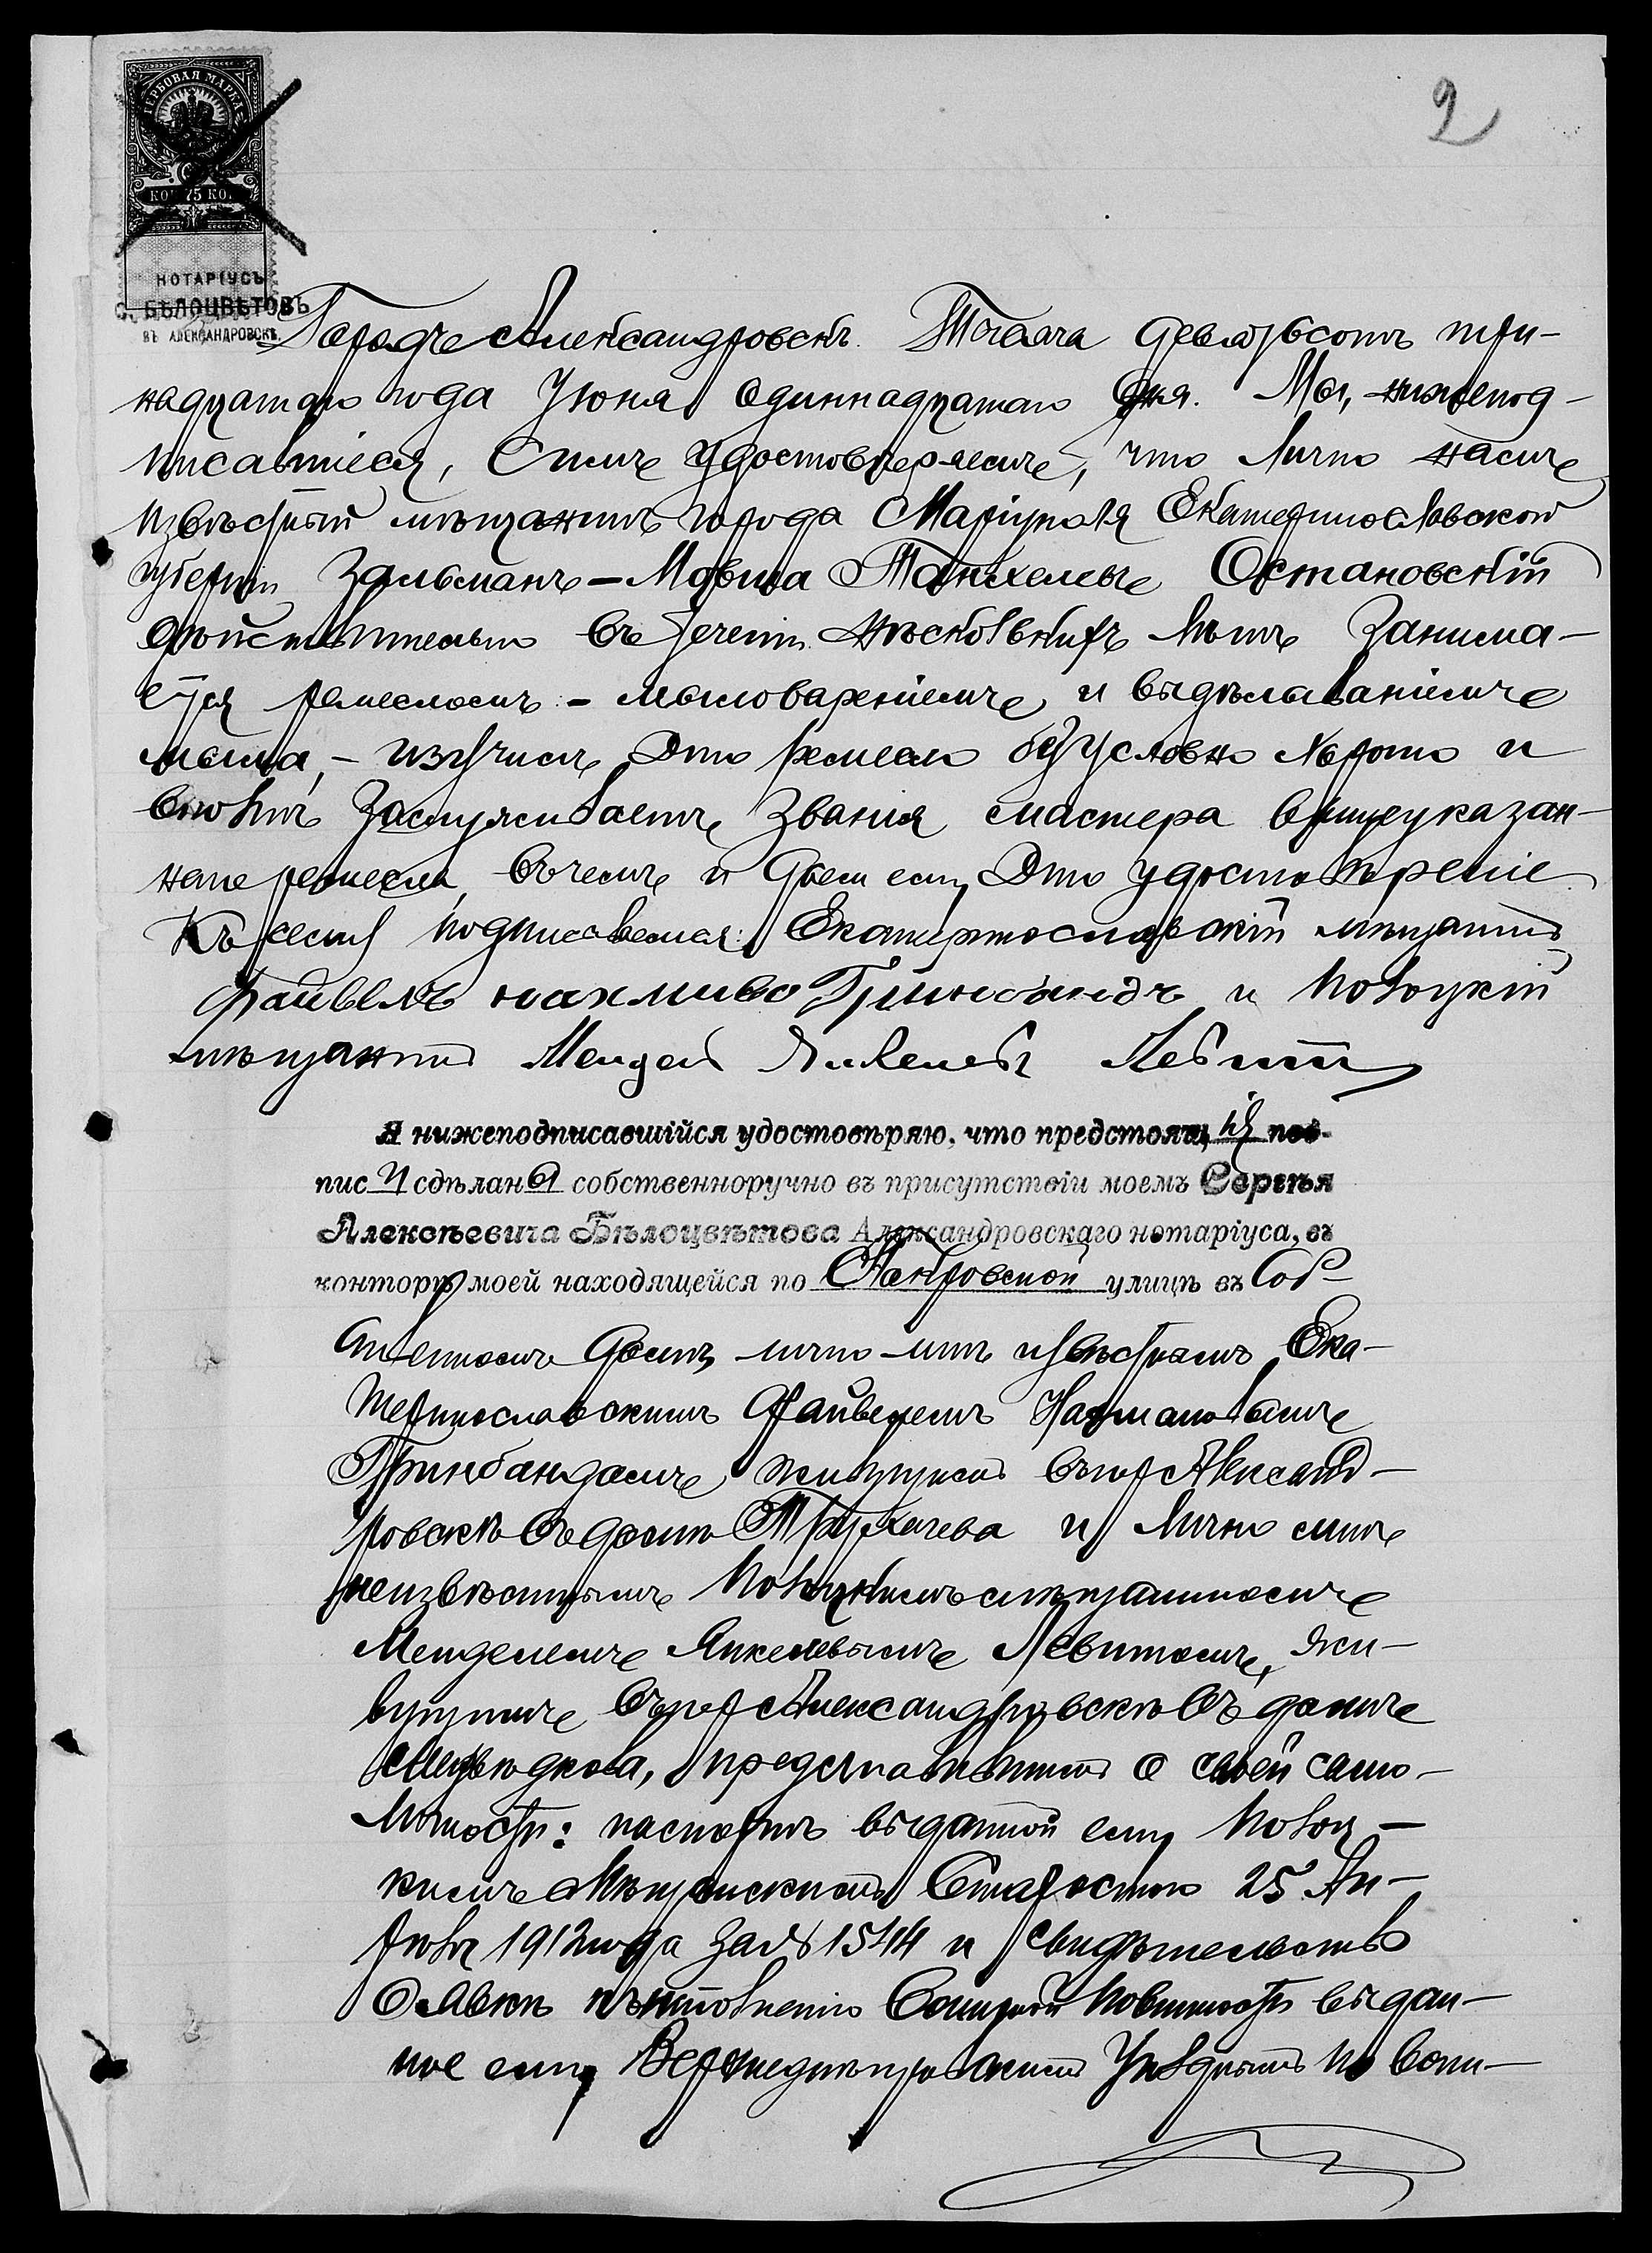 2
ГЕРБОВАЯ МАРКА
75 КО.
НОТАРІУСЪ
С. БѢЛОЦВѢТОВЪ
ВЪ АЛЕКСАНДРОВСКѢ.
Городъ Александровскъ. Тысяча девятьсотъ три-
надцатаго года Іюня одиннадцатаго дня. Мы, нижепод-
писавшіеся, симъ удостовѣряемъ, что лично намъ
извѣстный мѣщанинъ города Маріуполя Екатеринославской
губерніи Зальманъ-Мовша Танхелевъ Остановскій
дѣйствительно въ теченіи нѣсколькихъ лѣтъ занима-
ется ремесломъ: - мыловареніемъ и выдѣлываніемъ
мыла, - изучилъ это ремесло безусловно хорошо и
вполнѣ заслуживаетъ званія мастера вышеуказан-
наго ремесла, въ чемъ и даемъ ему это удостовѣреніе
Къ сему подписываемся: Екатеринославскій мѣщанинъ
Файвелъ Нахмивъ Гринбандъ и Полоцкій
мѣщанинъ Мендель Янкелевъ Левитъ
Я нижеподписавшійся удостовѣряю, что предстоящія под-
писи сдѣланы собственноручно въ присутствіи моемъ Сергѣя
Алексѣевича Бѣлоцвѣтова Александровскаго нотаріуса, въ
конторѣ моей находящейся по Покровской улицѣ въ соб-
ственномъ домѣ, лично мнѣ извѣстнымъ Ека-
теринославскимъ Файвелемъ Нахмановымъ
Гринбандомъ, живущимъ въ гор. Александ-
ровскѣ въ домѣ Трухачева и лично мнѣ
неизвѣстнымъ Полоцкимъ мѣщаниномъ
Менделемъ Янкелевымъ Левитомъ, жи-
вущимъ въ гор. Александровскѣ въ домѣ
Медвѣдкова, представившимъ о своей само-
личности: паспортъ выданный ему Полоц-
кимъ Мѣщанскимъ Старостою 25 Ап-
рѣля 1912 года за № 1544 и свидѣтельство
о явкѣ къ исполненію воинской повинности выдан-
ное ему Верхнеднѣпровскимъ Уѣзднымъ по воин-